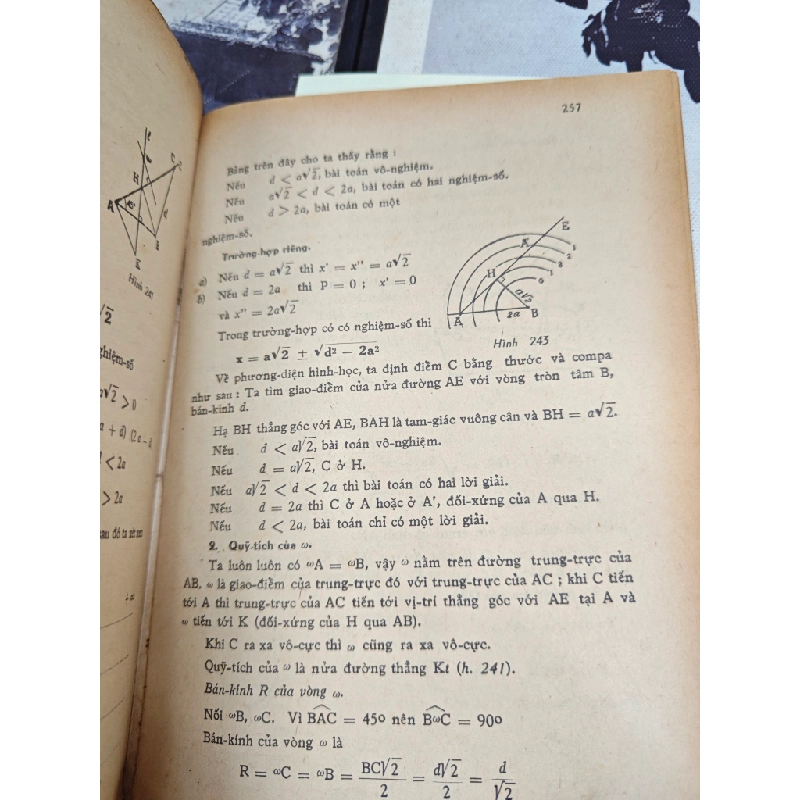 257
Bảng trên đây cho ta thấy rằng :
Nếu d < a√2, bài toán vô-nghiệm.
Nếu a√2 < d < 2a, bài toán có hai nghiệm-số.
Nếu d > 2a, bài toán có một
nghiệm-số.
Trường-hợp riêng.
a) Nếu d = a√2 thì x' = x'' = a√2
b) Nếu d = 2a thì P = 0 ; x' = 0
và x'' = 2a√2
Trong trường-hợp có có nghiệm-số thì
x = a√2 ± √d² − 2a²
E
K
H
a√2
A
2a
B
Hình 243
Về phương-diện hình-học, ta định điểm C bằng thước và compa
như sau : Ta tìm giao-điểm của nửa đường AE với vòng tròn tâm B,
bán-kính d.
Hạ BH thẳng góc với AE, BAH là tam-giác vuông cân và BH = a√2.
Nếu d < a√2, bài toán vô-nghiệm.
Nếu d = a√2, C ở H.
Nếu a√2 < d < 2a thì bài toán có hai lời giải.
Nếu d = 2a thì C ở A hoặc ở A', đối-xứng của A qua H.
Nếu d < 2a, bài toán chỉ có một lời giải.
2. Quỹ-tích của ω.
Ta luôn luôn có ωA = ωB, vậy ω nằm trên đường trung-trực của
AB. ω là giao-điểm của trung-trực đó với trung-trực của AC ; khi C tiến
tới A thì trung-trực của AC tiến tới vị-trí thẳng góc với AE tại A và
ω tiến tới K (đối-xứng của H qua AB).
Khi C ra xa vô-cực thì ω cũng ra xa vô-cực.
Quỹ-tích của ω là nửa đường thẳng Kt (h. 241).
Bán-kính R của vòng ω.
Nối ωB, ωC. Vì BAC = 45o nên BωC = 90o
Bán-kính của vòng ω là
R = ωC = ωB = BC√2/2 = d√2/2 = d/√2
H
A
B
K
Hình 241
√2
ghiệm-số
a√2 > 0
+ d) (2a − d
< 2a
> 2a